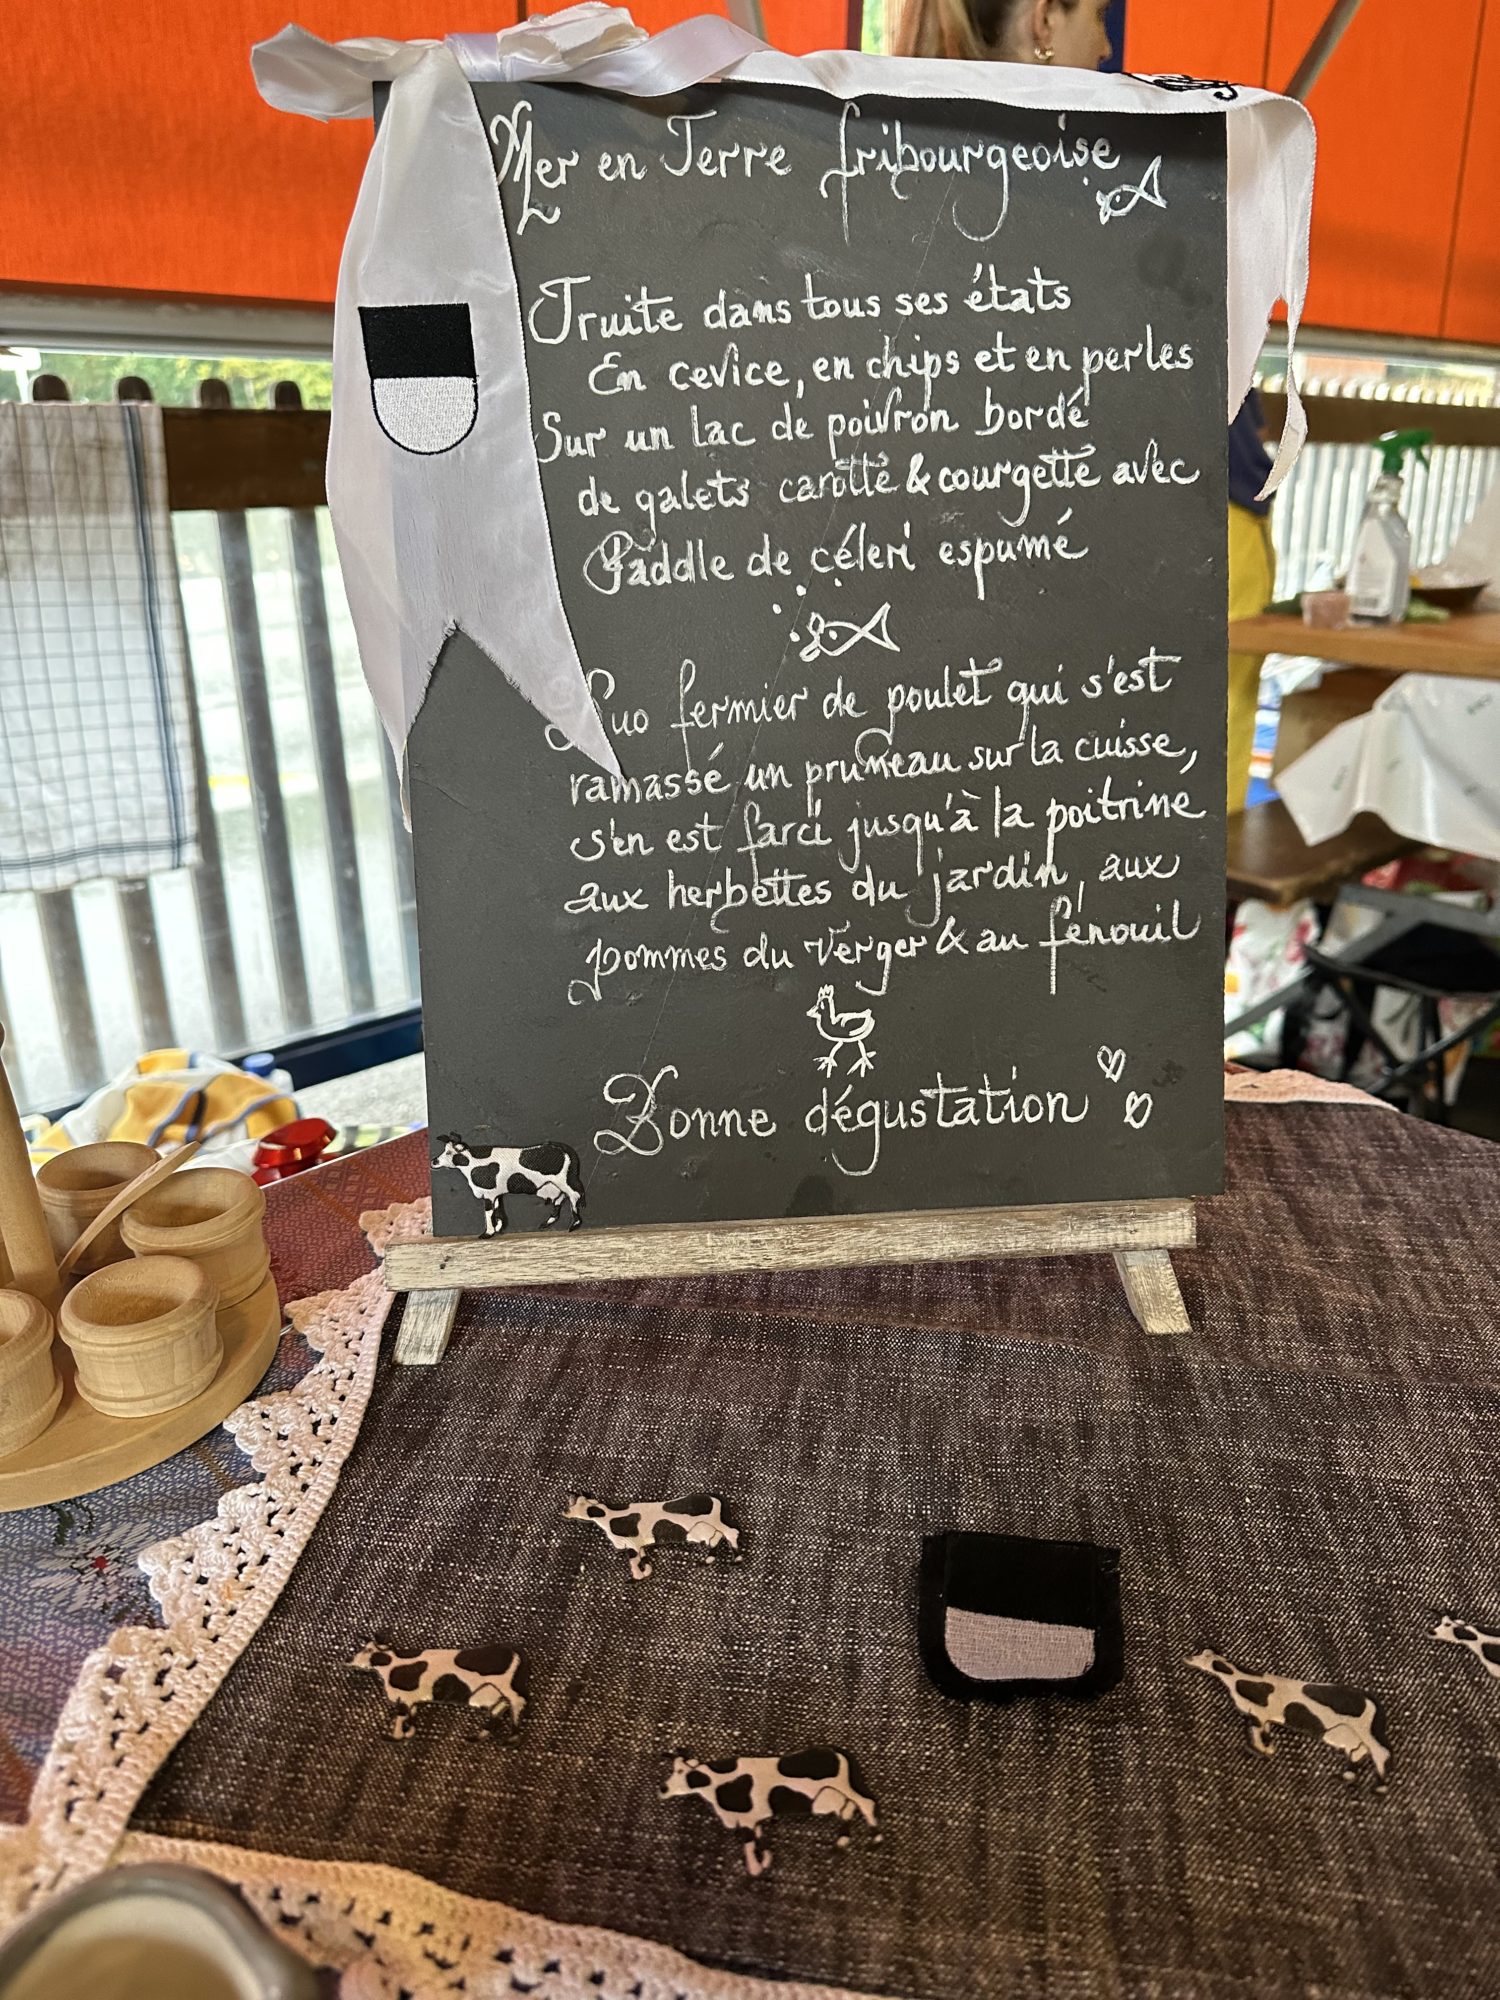 Mer en Terre fribourgeoise
Truite dans tous ses états
En cevice, en chips et en perles
Sur un lac de poivron bordé
de galets carotte & courgette avec
Paddle de céleri espumé
Duo fermier de poulet qui s'est
ramassé un pruneau sur la cuisse,
s'en est farci jusqu'à la poitrine
aux herbettes du jardin, aux
pommes du verger & au fenouil
Bonne dégustation